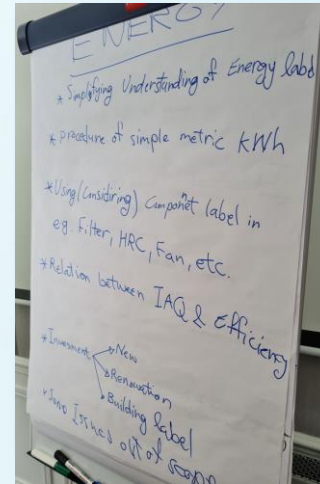 ENERGY
* Simplifying Understanding of Energy label
* procedure of simple metric kWh
* Using (Considiring) Componet label in
eg. Filter, HRC, Fan, etc.
* Relation between IAQ & Efficiency
* Invesment New
Renovation
Building label
* Issues out of scope